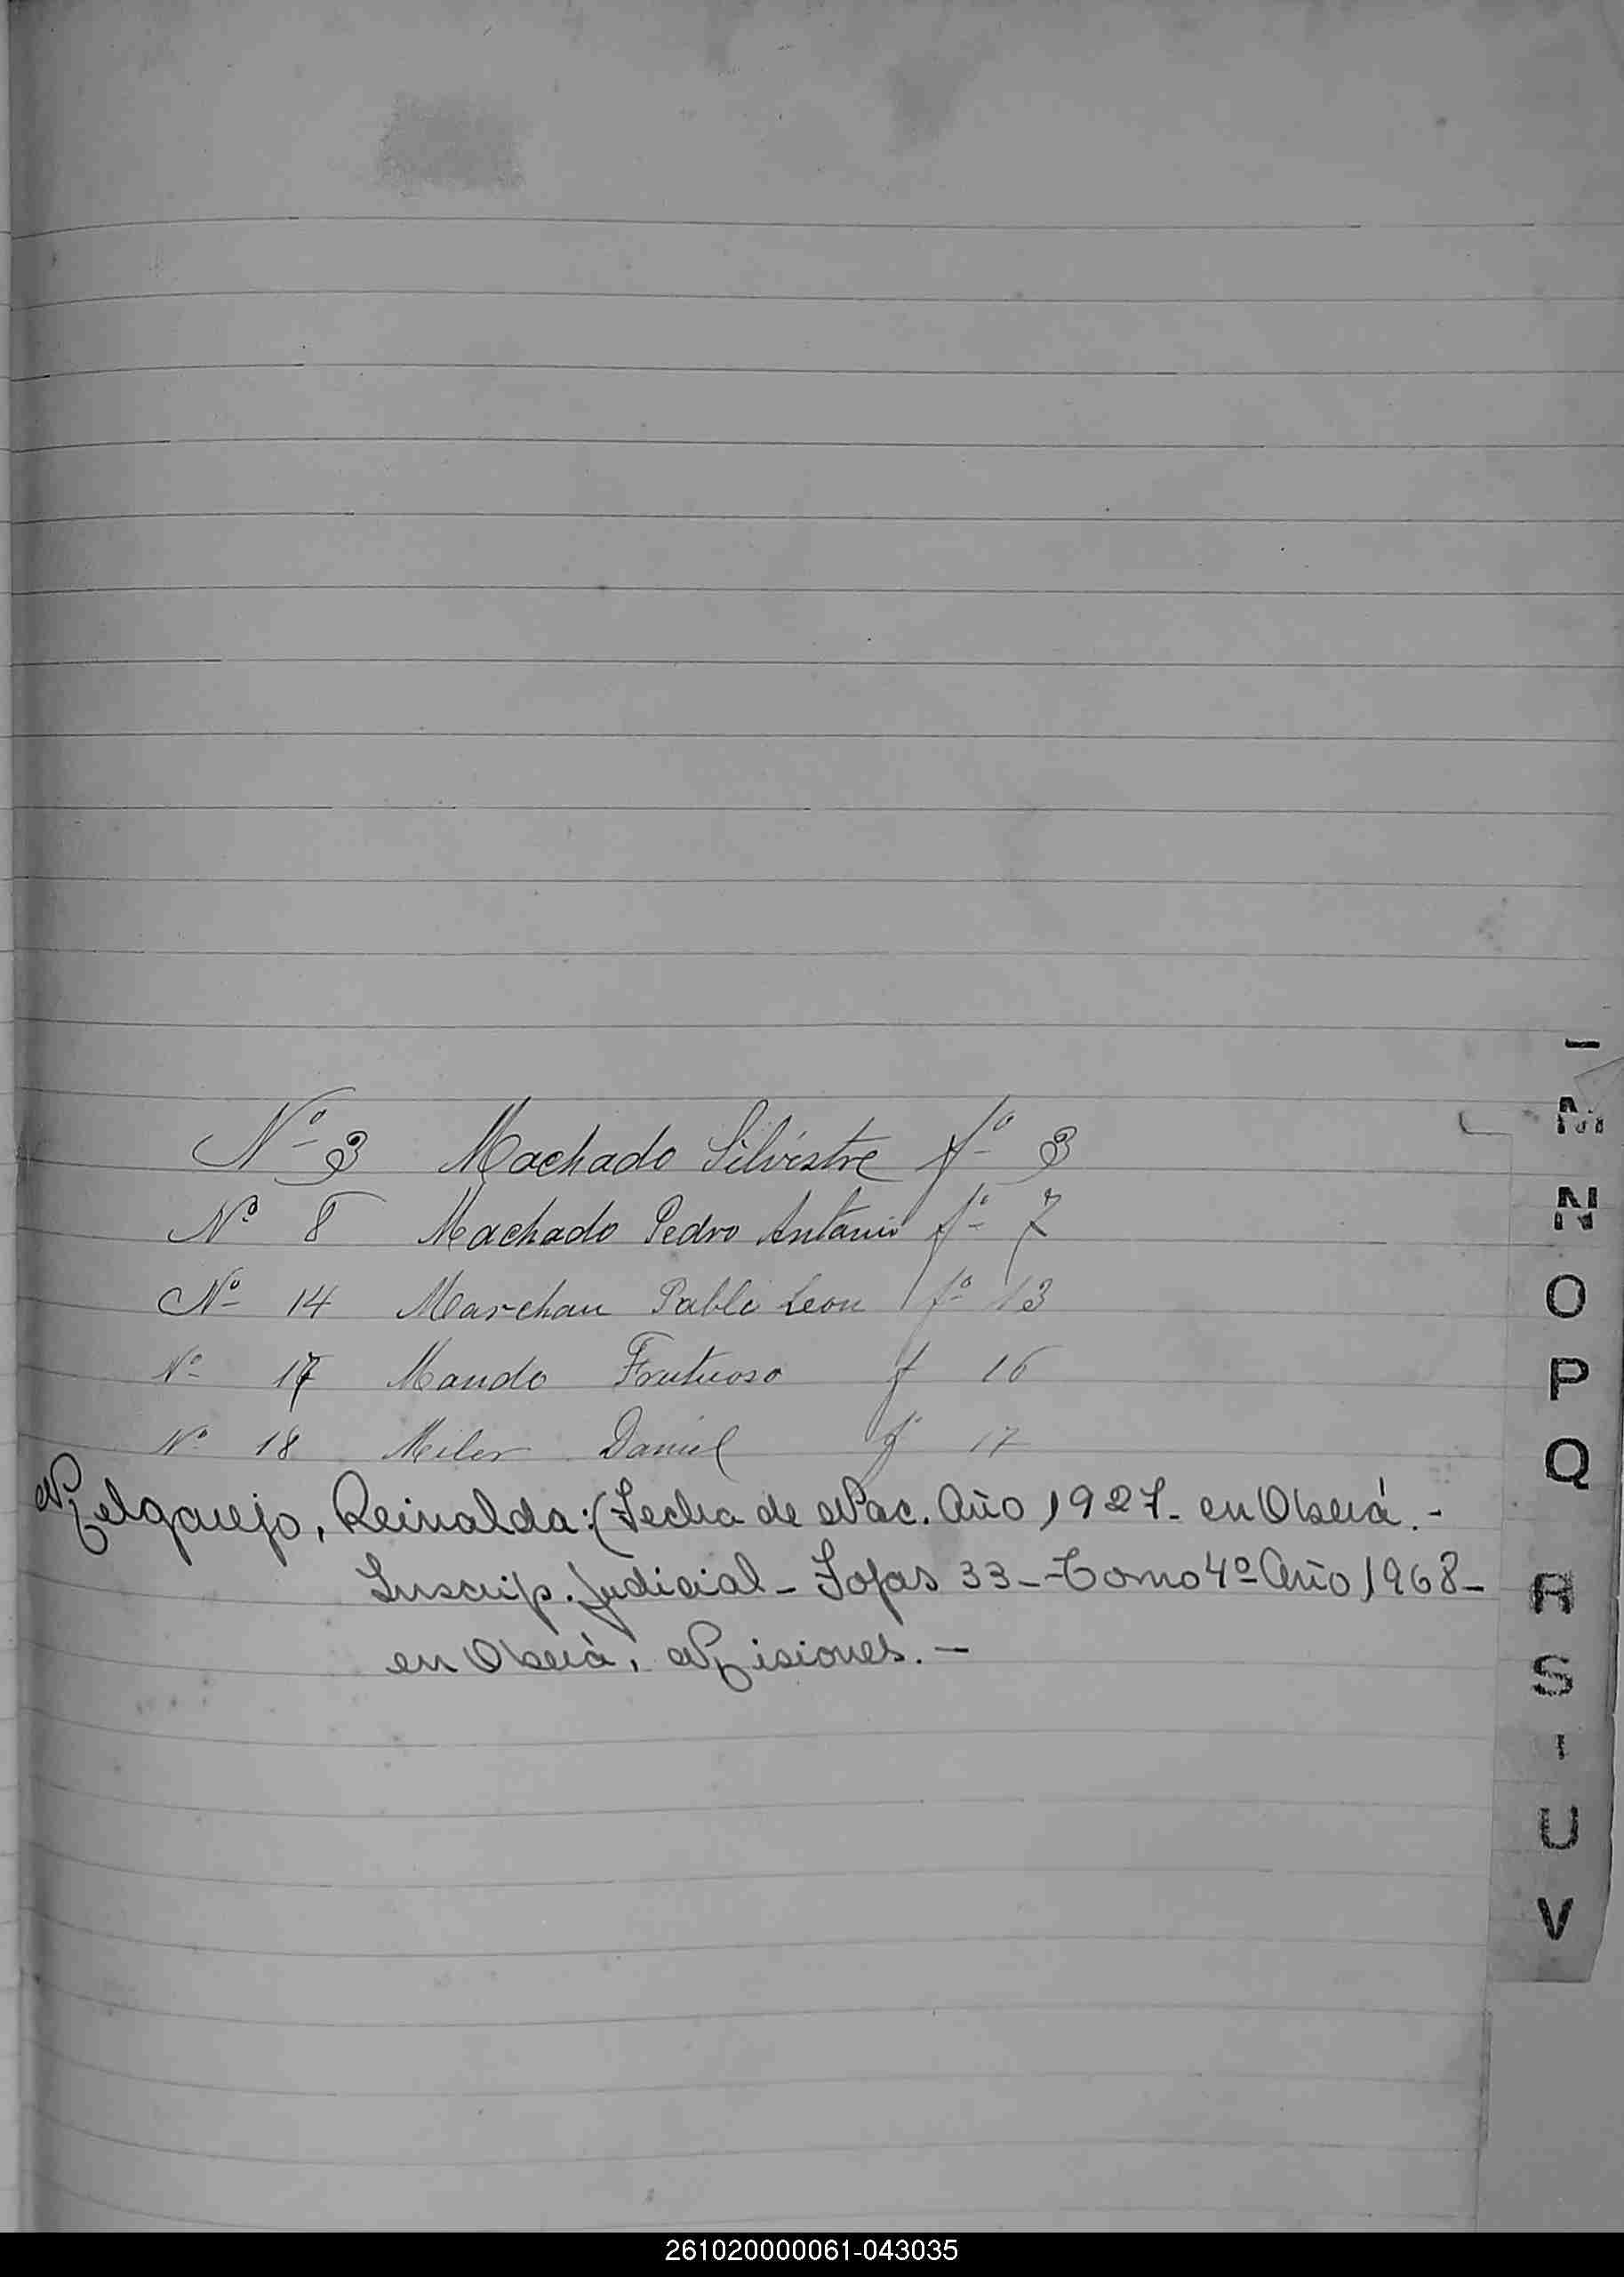 Nº 3 Machado Silvestre fº 3
Nº 8 Machado Pedro Antonio fº 7
Nº 14 Marchan Pablo Leon fº 13
Nº 17 Mando Frutuoso f 16
Nº 18 Miler Daniel fº 17
Melgarejo, Reinalda: (Fecha de Nac. Año 1927- en Oberá.-
Inscrip. Judicial - Fojas 33 - Tomo 4º Año 1968-
en Oberá, Misiones.-
M
N
O
P
Q
R
S
U
V
261020000061-043035